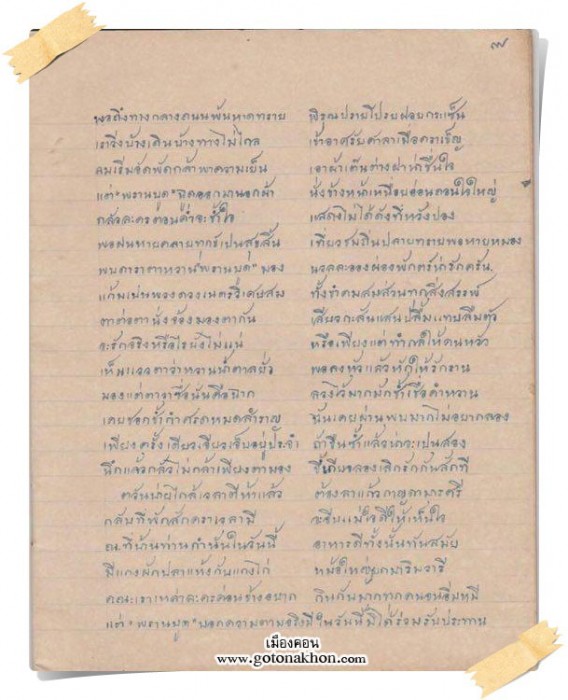 ๗
พอถึงทางกลางถนนพ้นหาดทราย พิรุณปรายโปรยฝอยกระเซ็น
เราวิ่งบ้างเดินบ้างทางไม่ไกล เข้าอาศรัยศาลาเมื่อคราเข็ญ
ลมเริ่มจัดพัดกล้าพาความเย็น เอาผ้าเต็นต่างฝาน่าชื่นใจ
แต่"พรานบูด"ฉูดออกมานอกผ้า นั่งข้างหน้าเหนื่อยอ่อนถอนใจใหญ่
กลัวละครตอนค่ำจะช้ำใจ แสดงไม่ได้ดังที่หวังปอง
พอฝนหายคลายทุกข์เป็นสุขสิ้น เที่ยวชมถิ่นปลายทรายพอหายหมอง
พบดาราตาหวาน"พรานบูด"มอง นวลละอองผ่องพักตร์น่ารักครัน
แก้มเปล่งดวงเนตรวิเศษสม ทั้งขำคมสมส่วนทุกสิ่งสรรพ์
ตาต่อตานั่งจ้องมองตากัน เสียวกระสันแสนปลื้มแทบลืมตัว
จะรักจริงหรือไรยังไม่แน่ หรือเพียงแต่ทำกลให้คนหัว
เห็นแววตาว่าหวานน้ำตาลยั่ว พอลงหัวแล้วหักให้รักราน
มองแต่ตาว่าซื่อนั้นคือ ลวงไว้มากมักช้ำเชื่อคำหวาน
เคยชอกช้ำกำศรดหมดสำราญ ฉันเคยผ่านพบมากไม่อยากลอง
เพียงครั้งเดียวเสียวเจ็บอยู่ประจำ ถ้าขืนซ้ำแล้วน่าจะเป็นสอง
นึกแล้วกลัวไม่กล้าเพียงตามอง ขี้เกียจลองเลิกรักกันสักที
ตวันบ่ายใกล้เวลาตีห้าแล้ว ต้องลาแล้ว
กลับที่พักสักคราเวลามี
ณ.ที่บ้านท่านกำนันในวันนี้ อาหารดีทั้งนั้นทันสมัย
มีแกงผักปลาแห้งกับแกงไก่ หม้อใหญ่ยกมา
คณะเราเหล่าละครค่อนข้างอยาก กินกันมาก
แต่"พรานบูด"บอกความตามจริงมี ในวันนี้มิได้ร่วมรับประทาน
เมืองคอน
www.gotonakhon.com